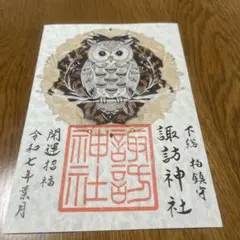 下総 柏鎮守
諏訪神社
諏訪
神社
開運招福
令和七年葉月